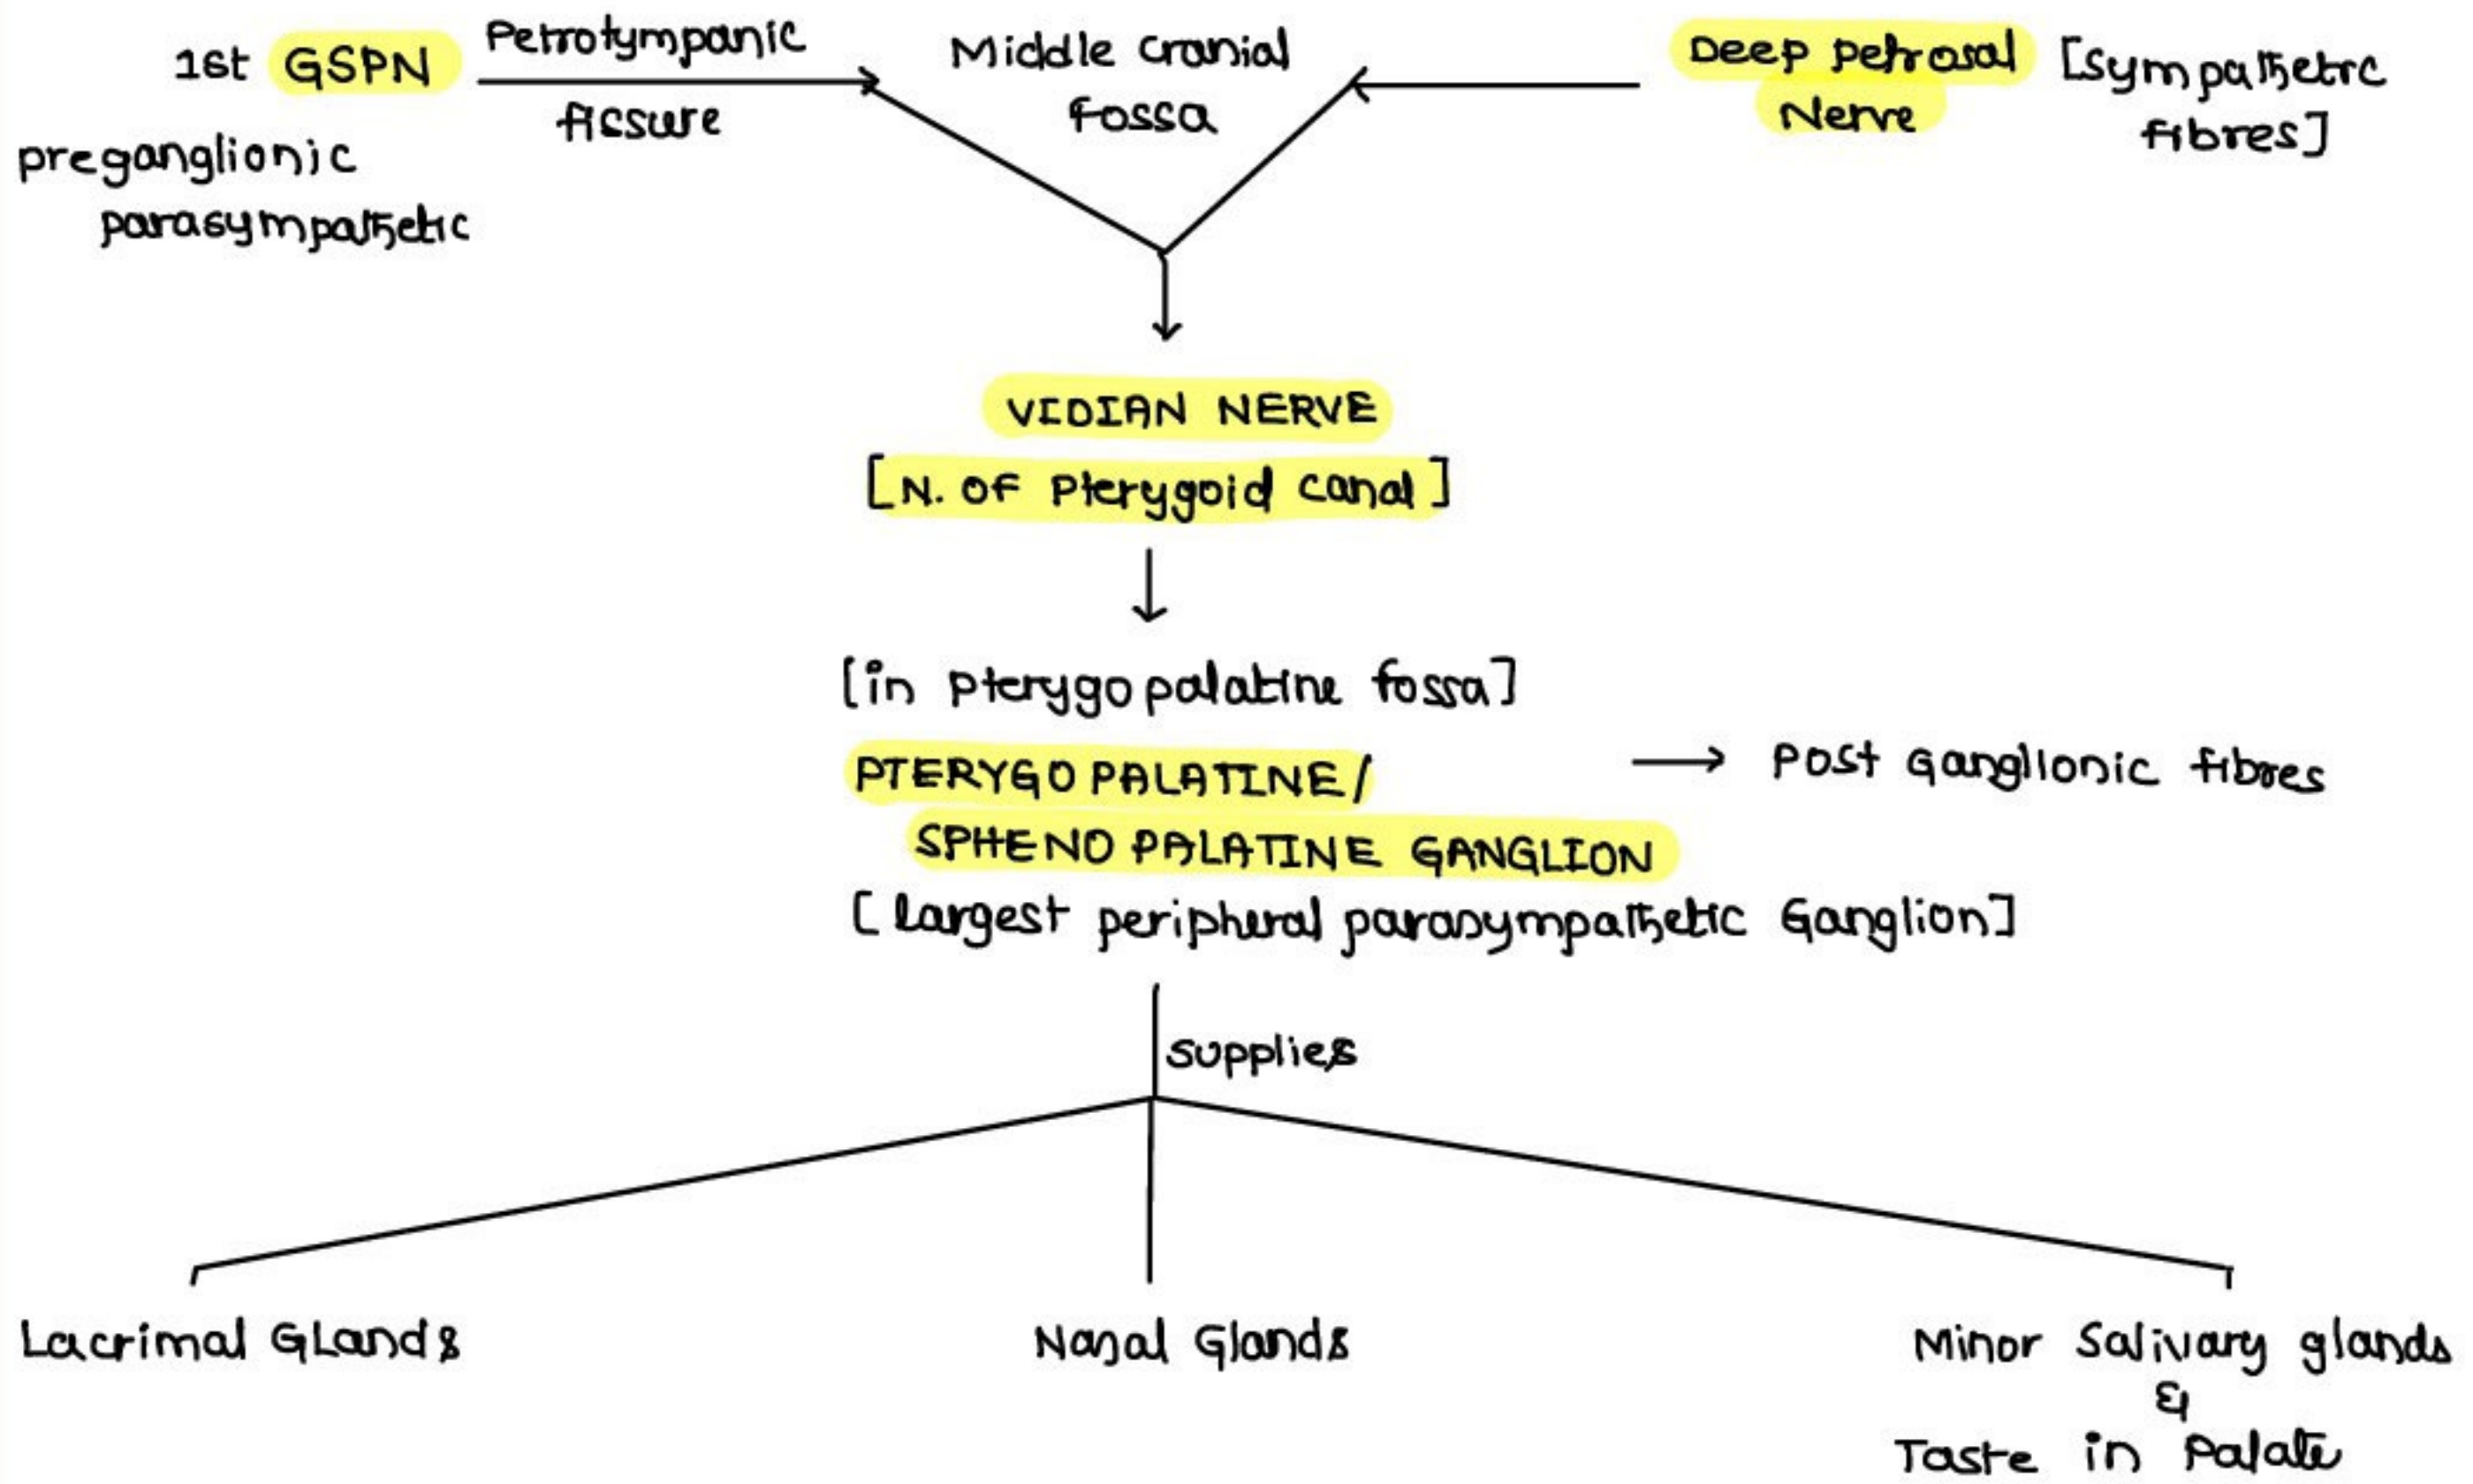 1st GSPN
preganglionic
parasympathetic
Petrotympanic
fissure
Middle cranial
fossa
Deep petrosal
Nerve
[sympathetic
fibres]
VIDIAN NERVE
[N. OF Pterygoid canal]
[in pterygopalatine fossa]
PTERYGO PALATINE/
SPHENO PALATINE GANGLION
→ Post Ganglionic fibres
[largest peripheral parasympathetic Ganglion]
supplies
Lacrimal GLands
Nasal Glands
Minor Salivary glands
&
Taste in Palate